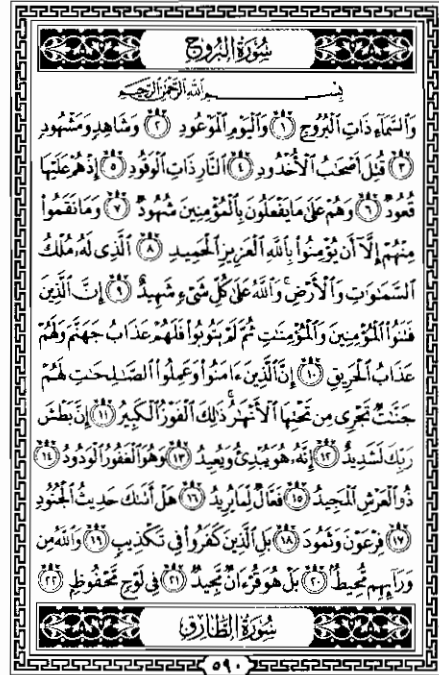 سُورَةُ البُرُوجِ
بِسْمِ ٱللَّهِ ٱلرَّحْمَٰنِ ٱلرَّحِيمِ
وَٱلسَّمَآءِ ذَاتِ ٱلْبُرُوجِ ١ وَٱلْيَوْمِ ٱلْمَوْعُودِ ٢ وَشَاهِدٍ وَمَشْهُودٍ
٣ قُتِلَ أَصْحَٰبُ ٱلْأُخْدُودِ ٤ ٱلنَّارِ ذَاتِ ٱلْوَقُودِ ٥ إِذْ هُمْ عَلَيْهَا
قُعُودٌ ٦ وَهُمْ عَلَىٰ مَا يَفْعَلُونَ بِٱلْمُؤْمِنِينَ شُهُودٌ ٧ وَمَا نَقَمُوا۟
مِنْهُمْ إِلَّآ أَن يُؤْمِنُوا۟ بِٱللَّهِ ٱلْعَزِيزِ ٱلْحَمِيدِ ٨ ٱلَّذِى لَهُۥ مُلْكُ
ٱلسَّمَٰوَٰتِ وَٱلْأَرْضِ ۚ وَٱللَّهُ عَلَىٰ كُلِّ شَىْءٍ شَهِيدٌ ٩ إِنَّ ٱلَّذِينَ
فَتَنُوا۟ ٱلْمُؤْمِنِينَ وَٱلْمُؤْمِنَٰتِ ثُمَّ لَمْ يَتُوبُوا۟ فَلَهُمْ عَذَابُ جَهَنَّمَ وَلَهُمْ
عَذَابُ ٱلْحَرِيقِ ١٠ إِنَّ ٱلَّذِينَ ءَامَنُوا۟ وَعَمِلُوا۟ ٱلصَّٰلِحَٰتِ لَهُمْ
جَنَّٰتٌ تَجْرِى مِن تَحْتِهَا ٱلْأَنْهَٰرُ ۚ ذَٰلِكَ ٱلْفَوْزُ ٱلْكَبِيرُ ١١ إِنَّ بَطْشَ
رَبِّكَ لَشَدِيدٌ ١٢ إِنَّهُۥ هُوَ يُبْدِئُ وَيُعِيدُ ١٣ وَهُوَ ٱلْغَفُورُ ٱلْوَدُودُ ١٤
ذُو ٱلْعَرْشِ ٱلْمَجِيدُ ١٥ فَعَّالٌ لِّمَا يُرِيدُ ١٦ هَلْ أَتَىٰكَ حَدِيثُ ٱلْجُنُودِ
١٧ فِرْعَوْنَ وَثَمُودَ ١٨ بَلِ ٱلَّذِينَ كَفَرُوا۟ فِى تَكْذِيبٍ ١٩ وَٱللَّهُ مِن
وَرَآئِهِم مُّحِيطٌ ٢٠ بَلْ هُوَ قُرْءَانٌ مَّجِيدٌ ٢١ فِى لَوْحٍ مَّحْفُوظٍ ٢٢
سُورَةُ الطَّارِقِ
٥٩٠